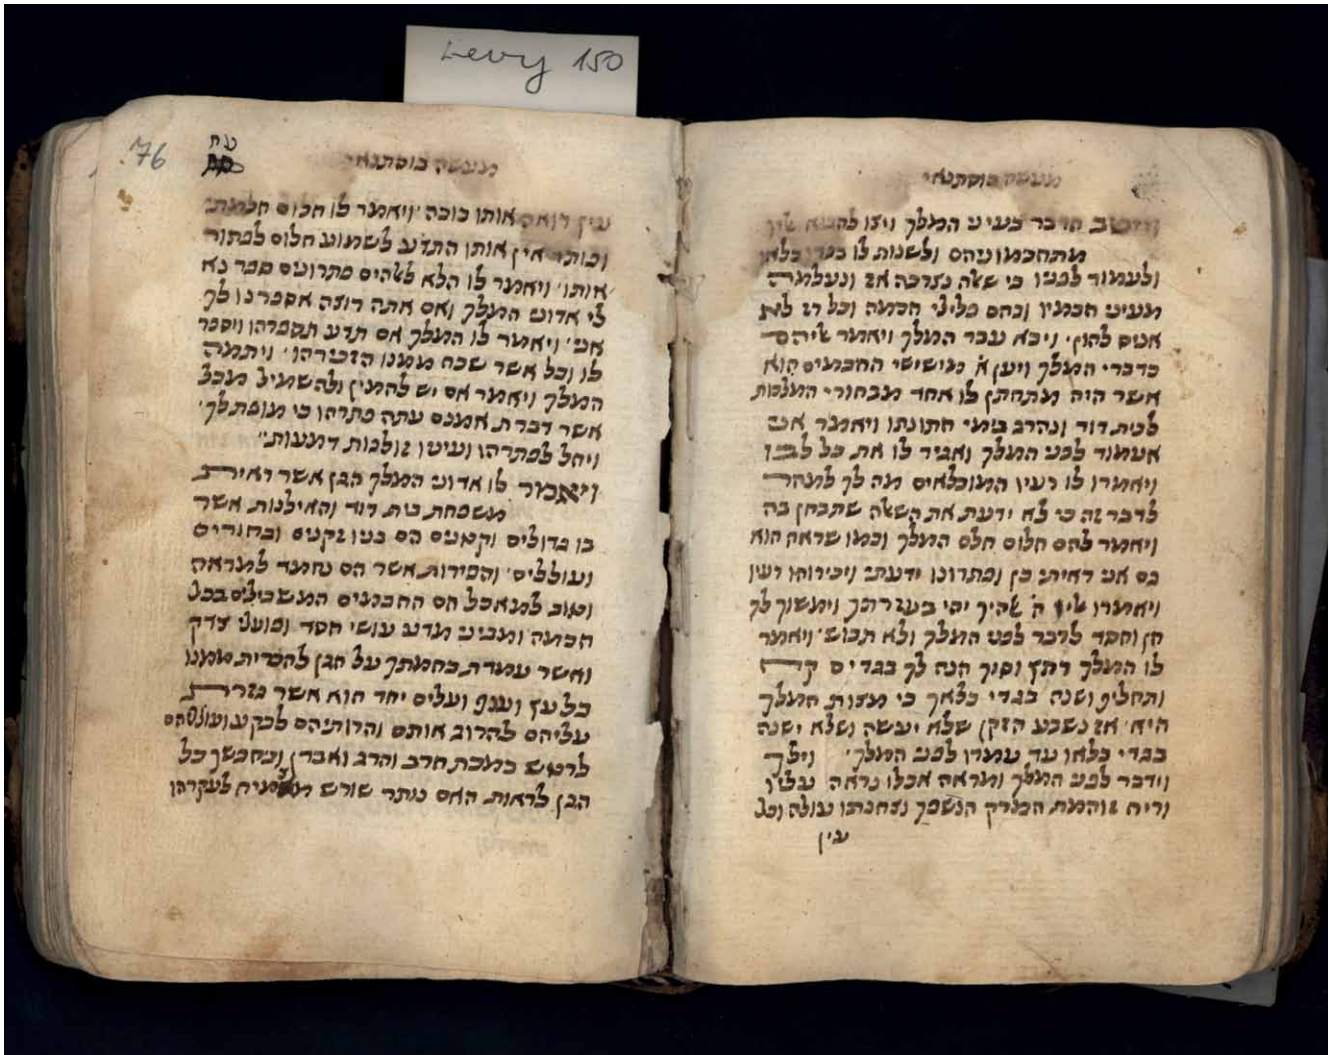 Levy 150
מעשה בוסתנאי
וייטב הדבר בעיני המלך ויצו להביא איש
מתחכמוניהם ולשנות לו בגדי כלאו
ולעמוד לפניו כי שאלה נצרכה אז ונעלמה
מעיני חכמיו ובהם פלילי חכמה וכל רז לא
אניס להון ויבא עבד המלך ויאמר אליהם
כדברי המלך ויען א' מישישי החכמים הוא
אשר היה מתחתן לו אחד מבחורי המלכות
לבית דוד ונהרג בימי חתונתו ויאמר אני
אעמוד לפני המלך ואגיד לו את כל לבבו
ויאמרו לו רעיו המוכלאים מה לך למהר
לדבר זה כי לא ידעת את השאלה שתבחן בה
ויאמר להם חלום חלם המלך וכמו שראה הוא
גם אני ראיתי כן ופתרונו ידעתי ויכירוהו רעיו
ויאמרו אליו ה' אלהיך יהי בעזרתך וימשוך לך
חן וחסד לדבר לפני המלך ולא תבוש ויאמר
לו המלך רחץ וסוך הנה לך בגדים קח
ותחליף ושנה בגדי כלאך כי מצות המלך
היא אז נשבע הזקן שלא יעשה ושלא ישנה
בגדי כלאו עד עמדו לפני המלך וילך
וידבר לפני המלך ומראה אבלו נראה עליו
וריח זוהמת הנשפך נצחנתו עולה וכל
עין
76
עח
מעשה בוסתנאי
עין רואה אותו בוכה ויאמר לו חלום חלמתי
ופותר אין אותו התדע לשמוע חלום לפתור
אותו ויאמר לו הלא לאלהים פתרונים ספר נא
לי אדוני המלך ואם אתה רוצה אספרנו לך
אני ויאמר לו המלך אם תדע תספרהו ויספר
לו וכל אשר שכח ממנו הזכירהו ויתמה
המלך ויאמר אם יש להמין ולהשמיל מכל
אשר דברת אמנם עתה פתרהו כי מופת לך
ויחל לפתרהו ועיניו זולגות דמעות
ויאמר לו אדוני המלך הגן אשר ראית
משפחת בית דוד והאילנות אשר
בו גדולים וקטנים הם בניו זקנים ובחורים
ועוללים והפירות אשר הם נחמד למראה
וטוב למאכל הם החכמים המשכילים בכל
חכמה ומביני מדע עושי חסד ופועלי צדק
ואשר עמדת בחמתך על הגן להכרית ממנו
כל עץ וענף ועלים יחד הוא אשר גזרת
עליהם להרוג אותם והרותיהם לבקע ועולליהם
לרטש במכת חרב והרג ואבדן ובחפשך כל
הגן לראות האם נותר שורש מצמיח לעקרהו